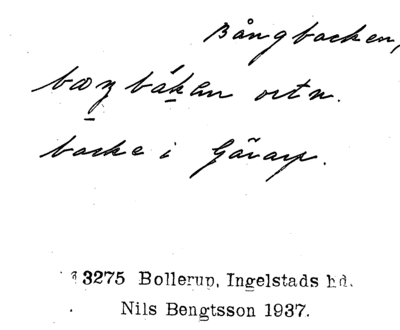 Bångbacken,
bœŋ bákan ortn.
backe i Gärarp.
3275 Bollerup, Ingelstads hd.
Nils Bengtsson 1937.